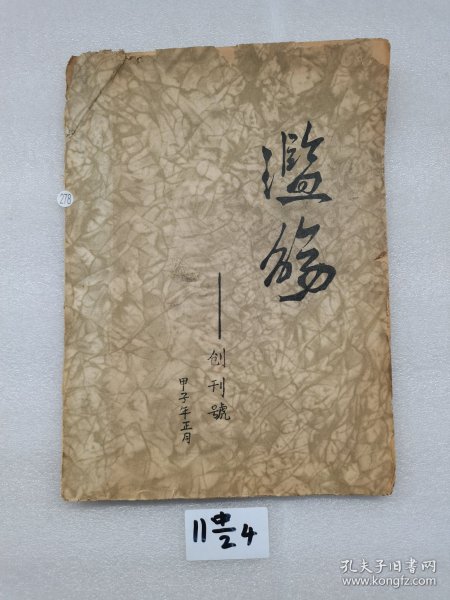 滥觞
——创刊號
甲子年正月
278
11中/24
孔夫子旧书网
www.kongfz.com